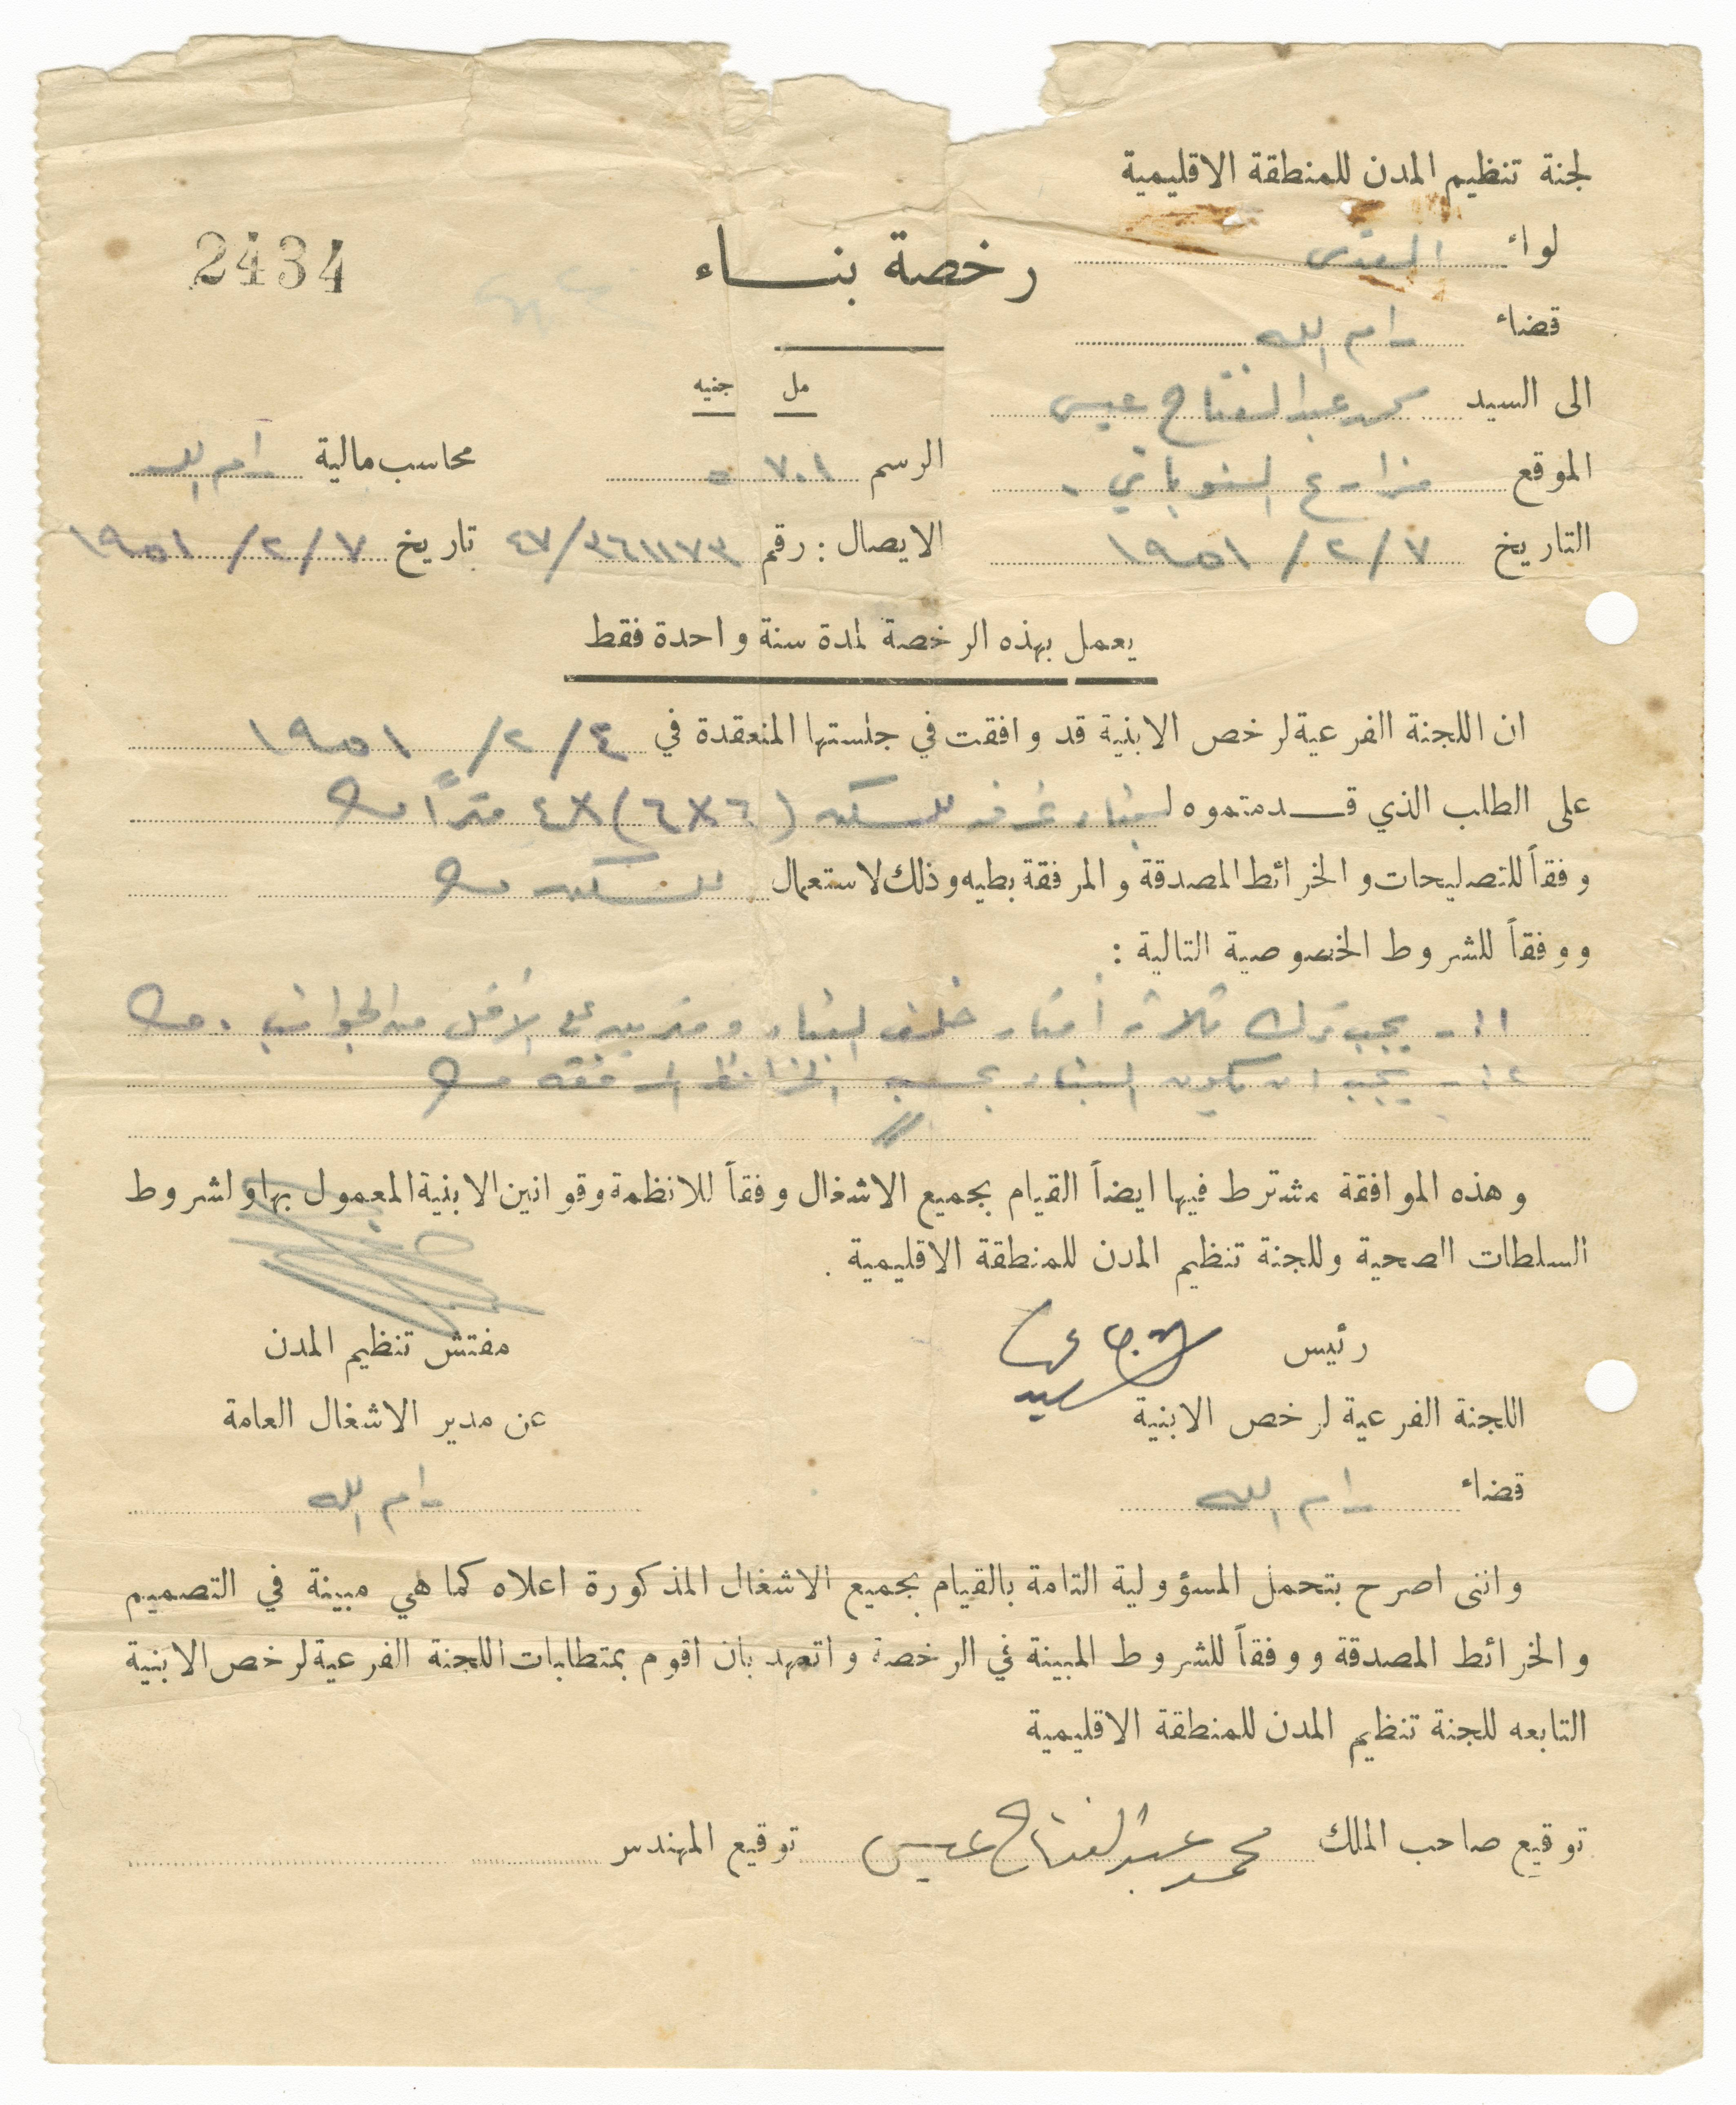 لجنة تنظيم المدن للمنطقة الاقليمية
لواء القدس
2434
رخصة بناء
قضاء رام الله
مل جنيه
الى السيد محمد عبد الفتاح عيسى
الموقع مزارع النوباني .
الرسم ٧٠١ -
محاسب مالية رام الله
التاريخ ٧/ ٢/ ١٩٥١
الايصال : رقم ٤٧/٣٦١١٧٣ تاريخ ٧/ ٢/ ١٩٥١
يعمل بهذه الرخصة لمدة سنة واحدة فقط
ان اللجنة الفرعية لرخص الابنية قد وافقت في جلستها المنعقدة في ٤/ ٢/ ١٩٥١
على الطلب الذي قدمتموه لبناء غرفه للسكن (٦X٦)X٤ متراً
وفقاً للتصليحات والخرائط المصدقة والمرفقة بطيه وذلك لاستعمال للسكن
ووفقاً للشروط الخصوصية التالية :
١١ - يجب ترك ثلاثة أمتار خلف البناء ومترين على الأقل من الجوانب .
١٢ - يجب ان يكون البناء بحسب الخرائط المرفقه
وهذه الموافقة مشترط فيها ايضاً القيام بجميع الاشغال وفقاً للانظمة وقوانين الابنية المعمول بها ولشروط
السلطات الصحية وللجنة تنظيم المدن للمنطقة الاقليمية .
رئيس
مفتش تنظيم المدن
اللجنة الفرعية لرخص الابنية
عن مدير الاشغال العامة
قضاء رام الله
رام الله
وانني اصرح بتحمل المسؤولية التامة بالقيام بجميع الاشغال المذكورة اعلاه كما هي مبينة في التصميم
والخرائط المصدقة ووفقاً للشروط المبينة في الرخصة واتعهد بان اقوم بمتطلبات اللجنة الفرعية لرخص الابنية
التابعه للجنة تنظيم المدن للمنطقة الاقليمية
توقيع صاحب الملك محمد عبد الفتاح عيسى توقيع المهندس